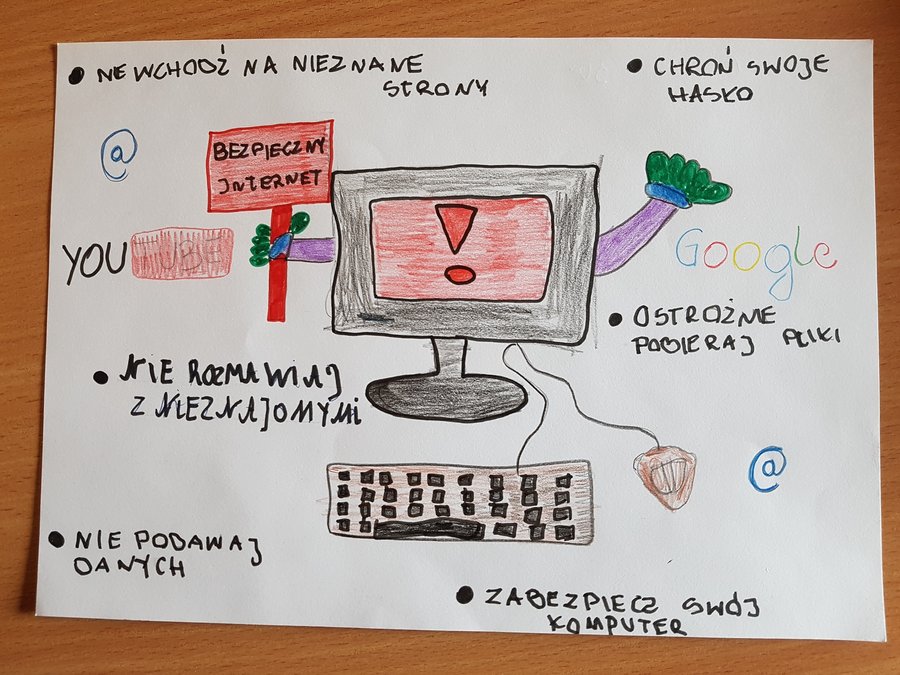 ● NE WCHODŹ NA NIEZNANE
STRONY
● CHROŃ SWOJE
HASKO
@
BEZPIECZNY
INTERNET
YOU TUBE
Google
● OSTROŻNIE
POBIERAJ PLIKI
● NIE ROZMAWIAJ
Z NIEZNAJOMYMI
@
● NIE PODAWAJ
DANYCH
● ZABEZPIECZ SWÓJ
KOMPUTER